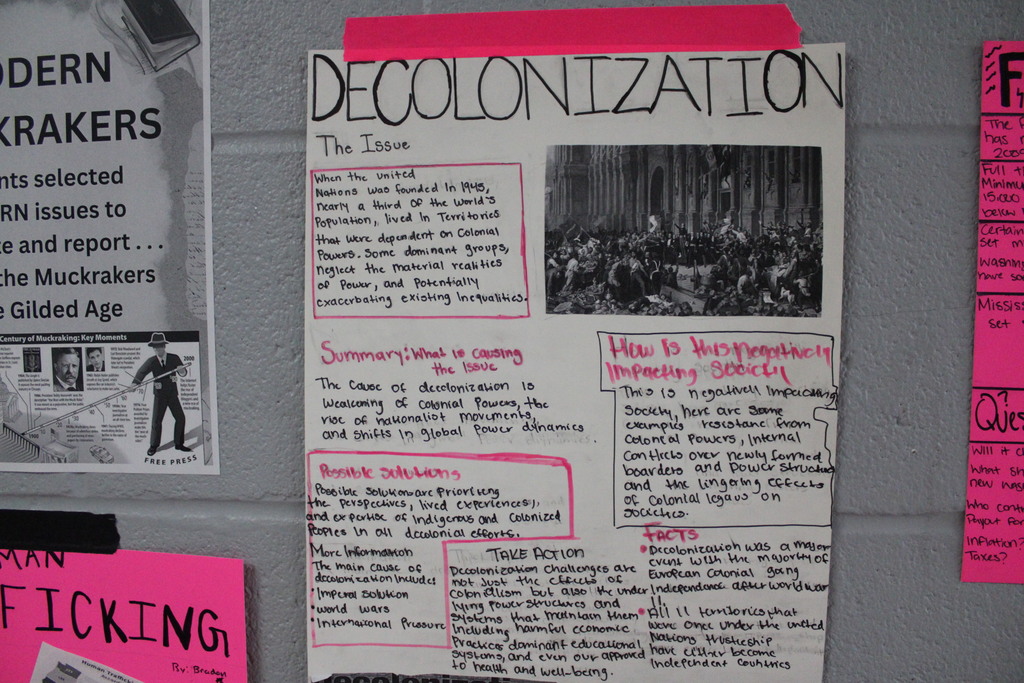 DECOLONIZATION
The Issue
When the united
Nations was founded In 1945,
nearly a third of the world's
Population, lived In Territories
that were dependent on Colonial
Powers. Some dominant groups,
neglect the material realities
of Power, and Potentially
exacerbating existing Inequalities.
Summary: What is causing
the issue
The cause of decolonization is
of Colonial Powers, the
rise of nationalist movements,
and shifts in global Power dynamics
How Is this Negatively
Impacting Society
This is negatively Impacting
Society, here are some
examples resistance from
Colonial Powers, Internal
Conflicts over newly formed
boarders and Power Structures
and the lingering effects
of Colonial legacys on
societies.
Possible Solutions
Possible Solution are Prioritizing
the perspectives, lived experiences,
and expertise of Indigenous and Colonized
Peoples in all decolonial efforts.
More Information
The main cause of
decolonization Includes
• Imperial Solution
• world wars
• International Pressure
TAKE ACTION
Decolonization Challenges are
not Just the effects of
colonialism but also the under
lying power structures and
systems that maintain them
Including harmful economic
Practices, dominant educational
Systems, and even our approved
to health and well-being.
FACTS
• Decolonization was a major
event with the majority of
European Colonial going
Independance after world war
II
• All 11 territories that
were once under the united
Nations trusteeship
have either become
Independent Countries
ODERN
KRAKERS
nts selected
RN issues to
e and report . . .
the Muckrakers
e Gilded Age
Century of Muckraking: Key Moments
2000
1900
FREE PRESS
MAN
FICKING
By: Braden
F
The
has
2009
Full t
Minimu
15.000
below
Certain
set m
Washin
have so
Mississ
set
Ques
Will it c
What sh
new was
Who cont
Payout For
Inflation?
Taxes?